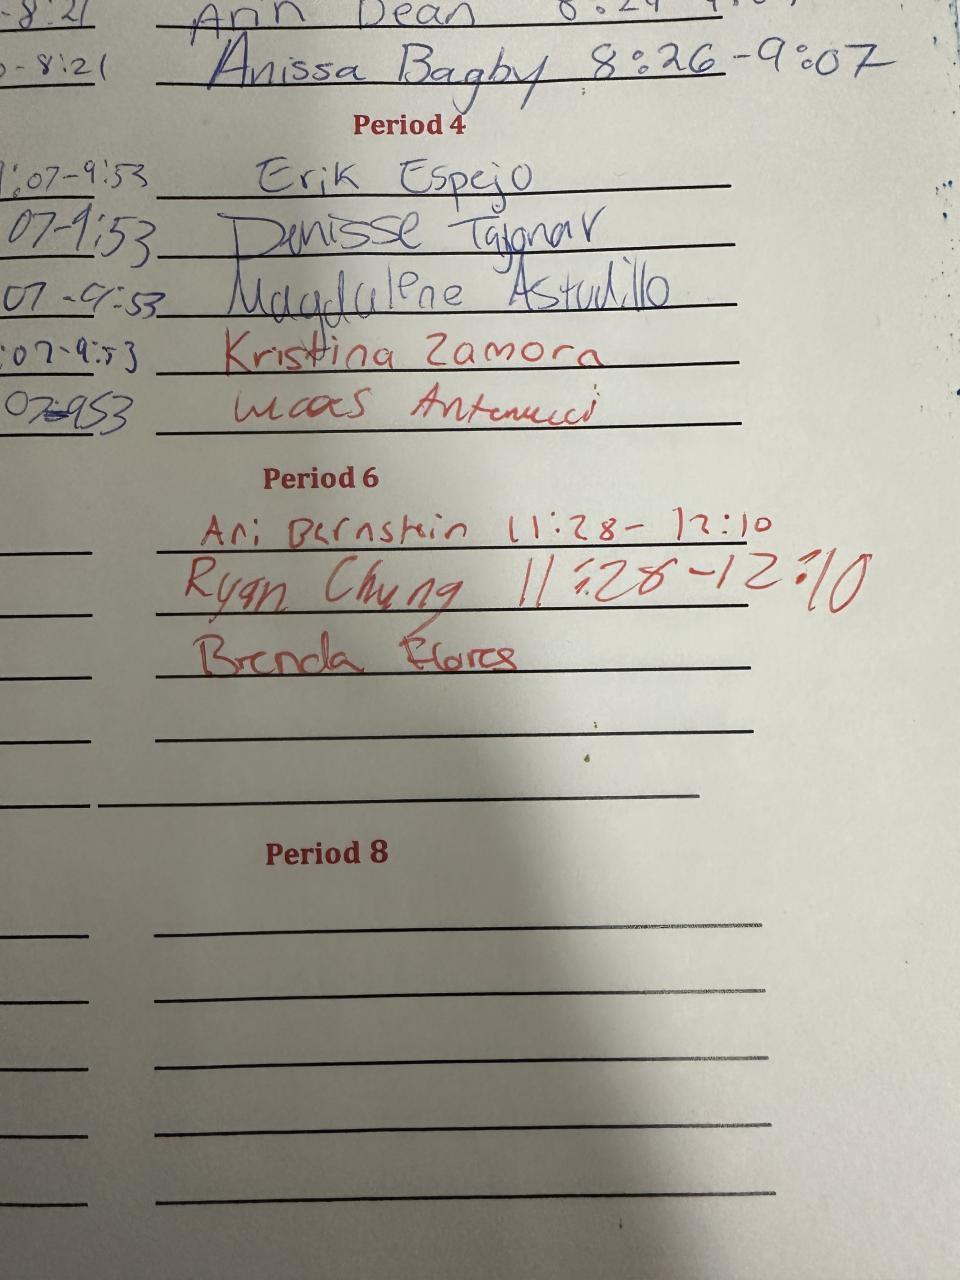 -8:21 Ann Dean
- 8:21 Anissa Bagby 8:26-9:07
Period 4
:07-9:53 Erik Espejo
07-9:53 Denisse Tajonar
07-9:53 Magdalene Astudillo
:07-9:53 Kristina Zamora
07-953 Lucas Antenucci
Period 6
Ari Bernstein 11:28- 12:10
Ryan Chung 11:28-12:10
Brenda Flores
Period 8